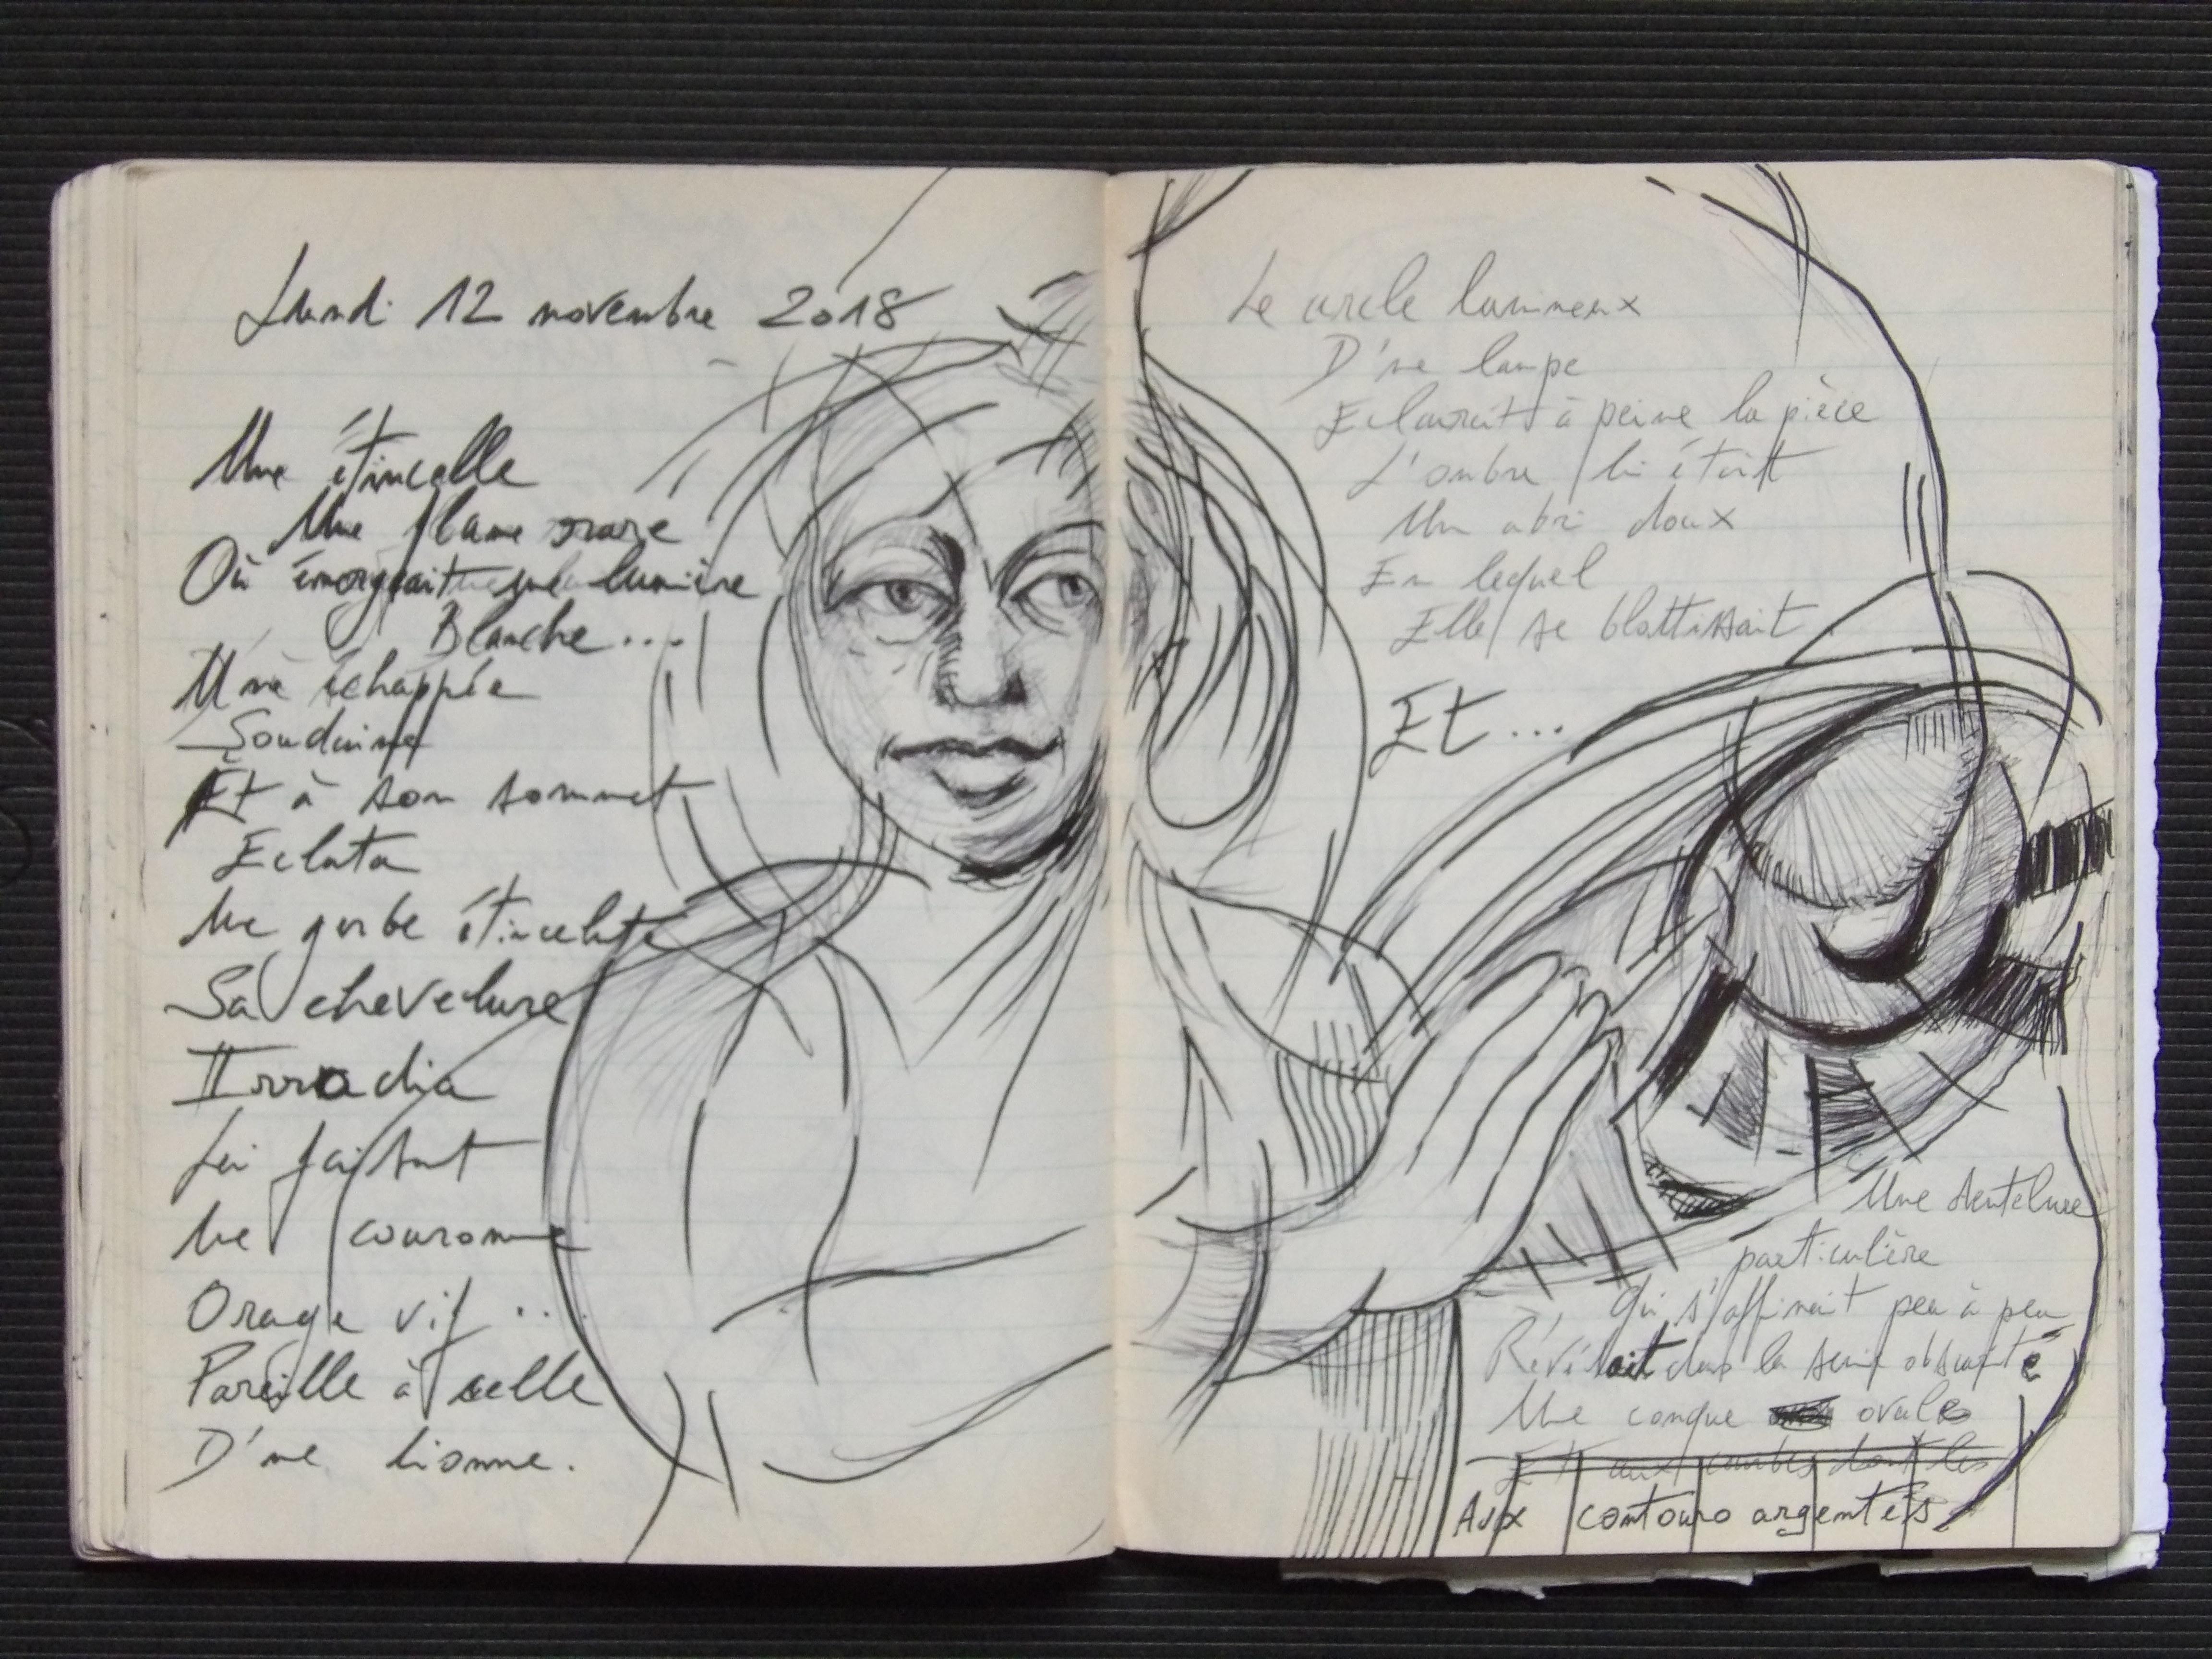 Lundi 12 novembre 2018
Une étincelle
Une flame
Où émergeait lumière
Blanche....
Une échappée
Soudaine
Et à son sommet
Eclata
Une gerbe étincelate
Sa chevelure
Irradia
Lui faisant
Une couronne
Orage vif ...
Pareille à celle
D'une lionne.
Le cercle lumineux
D'une lampe
Eclairait à peine la pièce
L'ombre lui était
Un abri doux
En lequel
Elle se blottissait.
Et...
Une dentelure
particulière
Qui s'affinait peu à peu
Révélait dans la semi obscurité
Une conque ovale
Et aux courbes dont les
Aux contours argentés